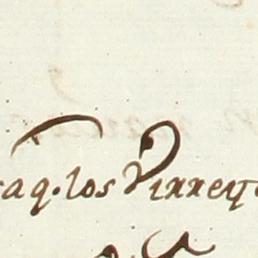 aq. los Virrey